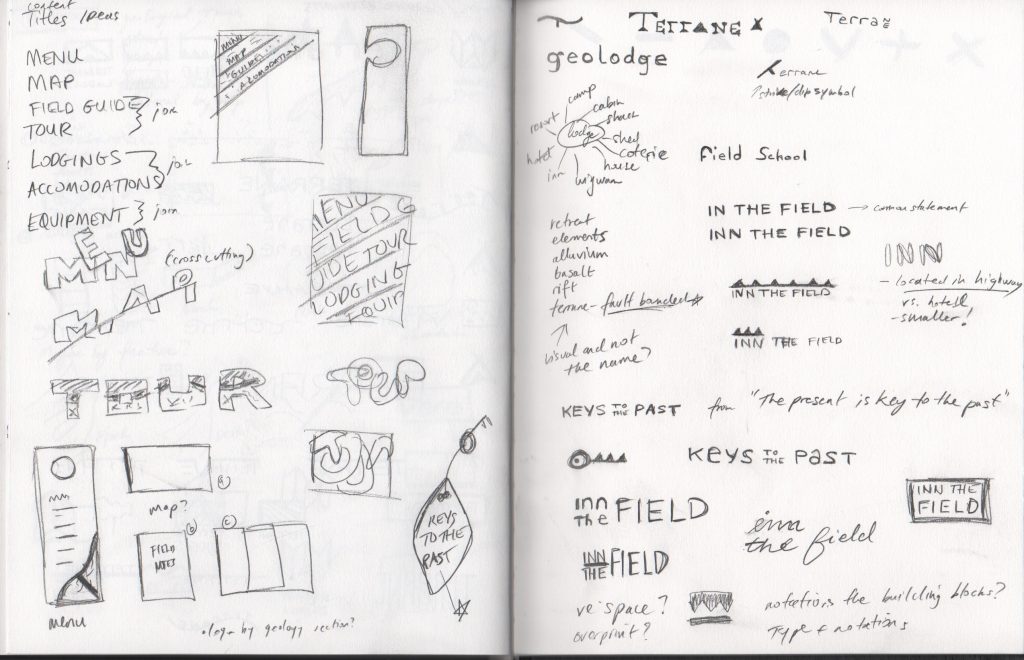 content
Titles / Deas
MENU
MAP
FIELD GUIDE
TOUR
join
LODGINGS
ACCOMODATIONS
join
EQUIPMENT
join
MENU
MAP
GUIDE
ACCOMODATION
MENU
(crosscutting)
MAP
MENU
FIELD G
UIDE TOUR
LODGING
EQUIP
TOUR
TOUR
menu
map?
a
b
FIELD
NOTES
c
KEYS
TO THE
PAST
by geology section?
TERRANE
Terrane
geolodge
terrane
strike/dip symbol
lodge
camp
cabin
shack
shed
coterie
house
wigwam
inn
hotel
resort
Field School
IN THE FIELD → common statement
INN THE FIELD
retreat
elements
alluvium
basalt
rift
terrane - fault bounded
visual and not
the name?
INN
- located in highway
vs. hotel
- smaller!
INN THE FIELD
INN THE FIELD
KEYS TO THE PAST from "The present is key to the past"
KEYS TO THE PAST
inn the FIELD
inn
the field
INN THE
FIELD
INN THE FIELD
space?
overprint?
notations the building blocks?
Type + notations